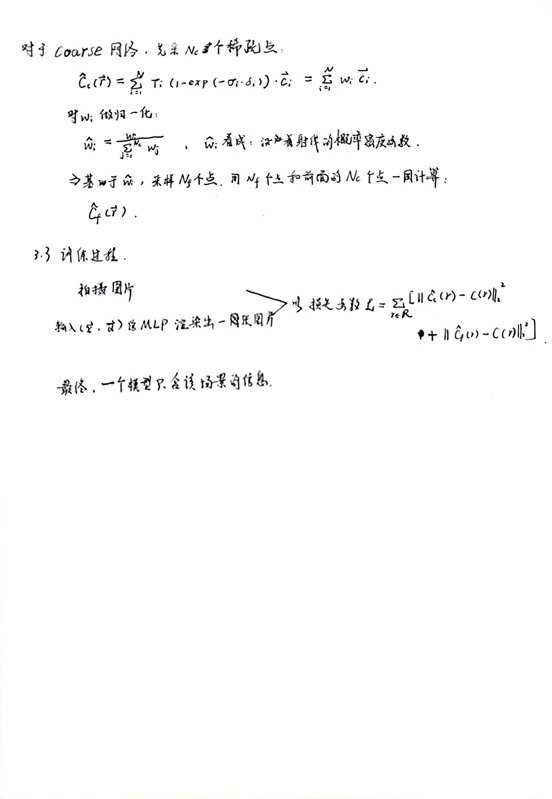 对于 coarse 网络，先采 Nc 个稀疏点：
Ĉc(r⃗) = Σ_{i=1}^{N} Ti (1-exp(-σi·δi))·c⃗i = Σ_{i=1}^{N} wi c⃗i.
对 wi 做归一化：
ŵi = wi / Σ_{j=1}^{Nc} wj ，ŵi 看成：沿着射线的概率密度函数.
⇒基于 ŵi，采样 Nf 个点. 用 Nf 个点和前面的 Nc 个点一同计算：
Ĉf(r⃗).
3.3 训练过程.
拍摄图片
输入(x⃗, d⃗) 给 MLP 渲染出一张图片
损失函数 L = Σ_{r∈R} [||Ĉc(r) - C(r)||₂²
+ ||Ĉf(r) - C(r)||₂²]
最终，一个模型只含该场景的信息.